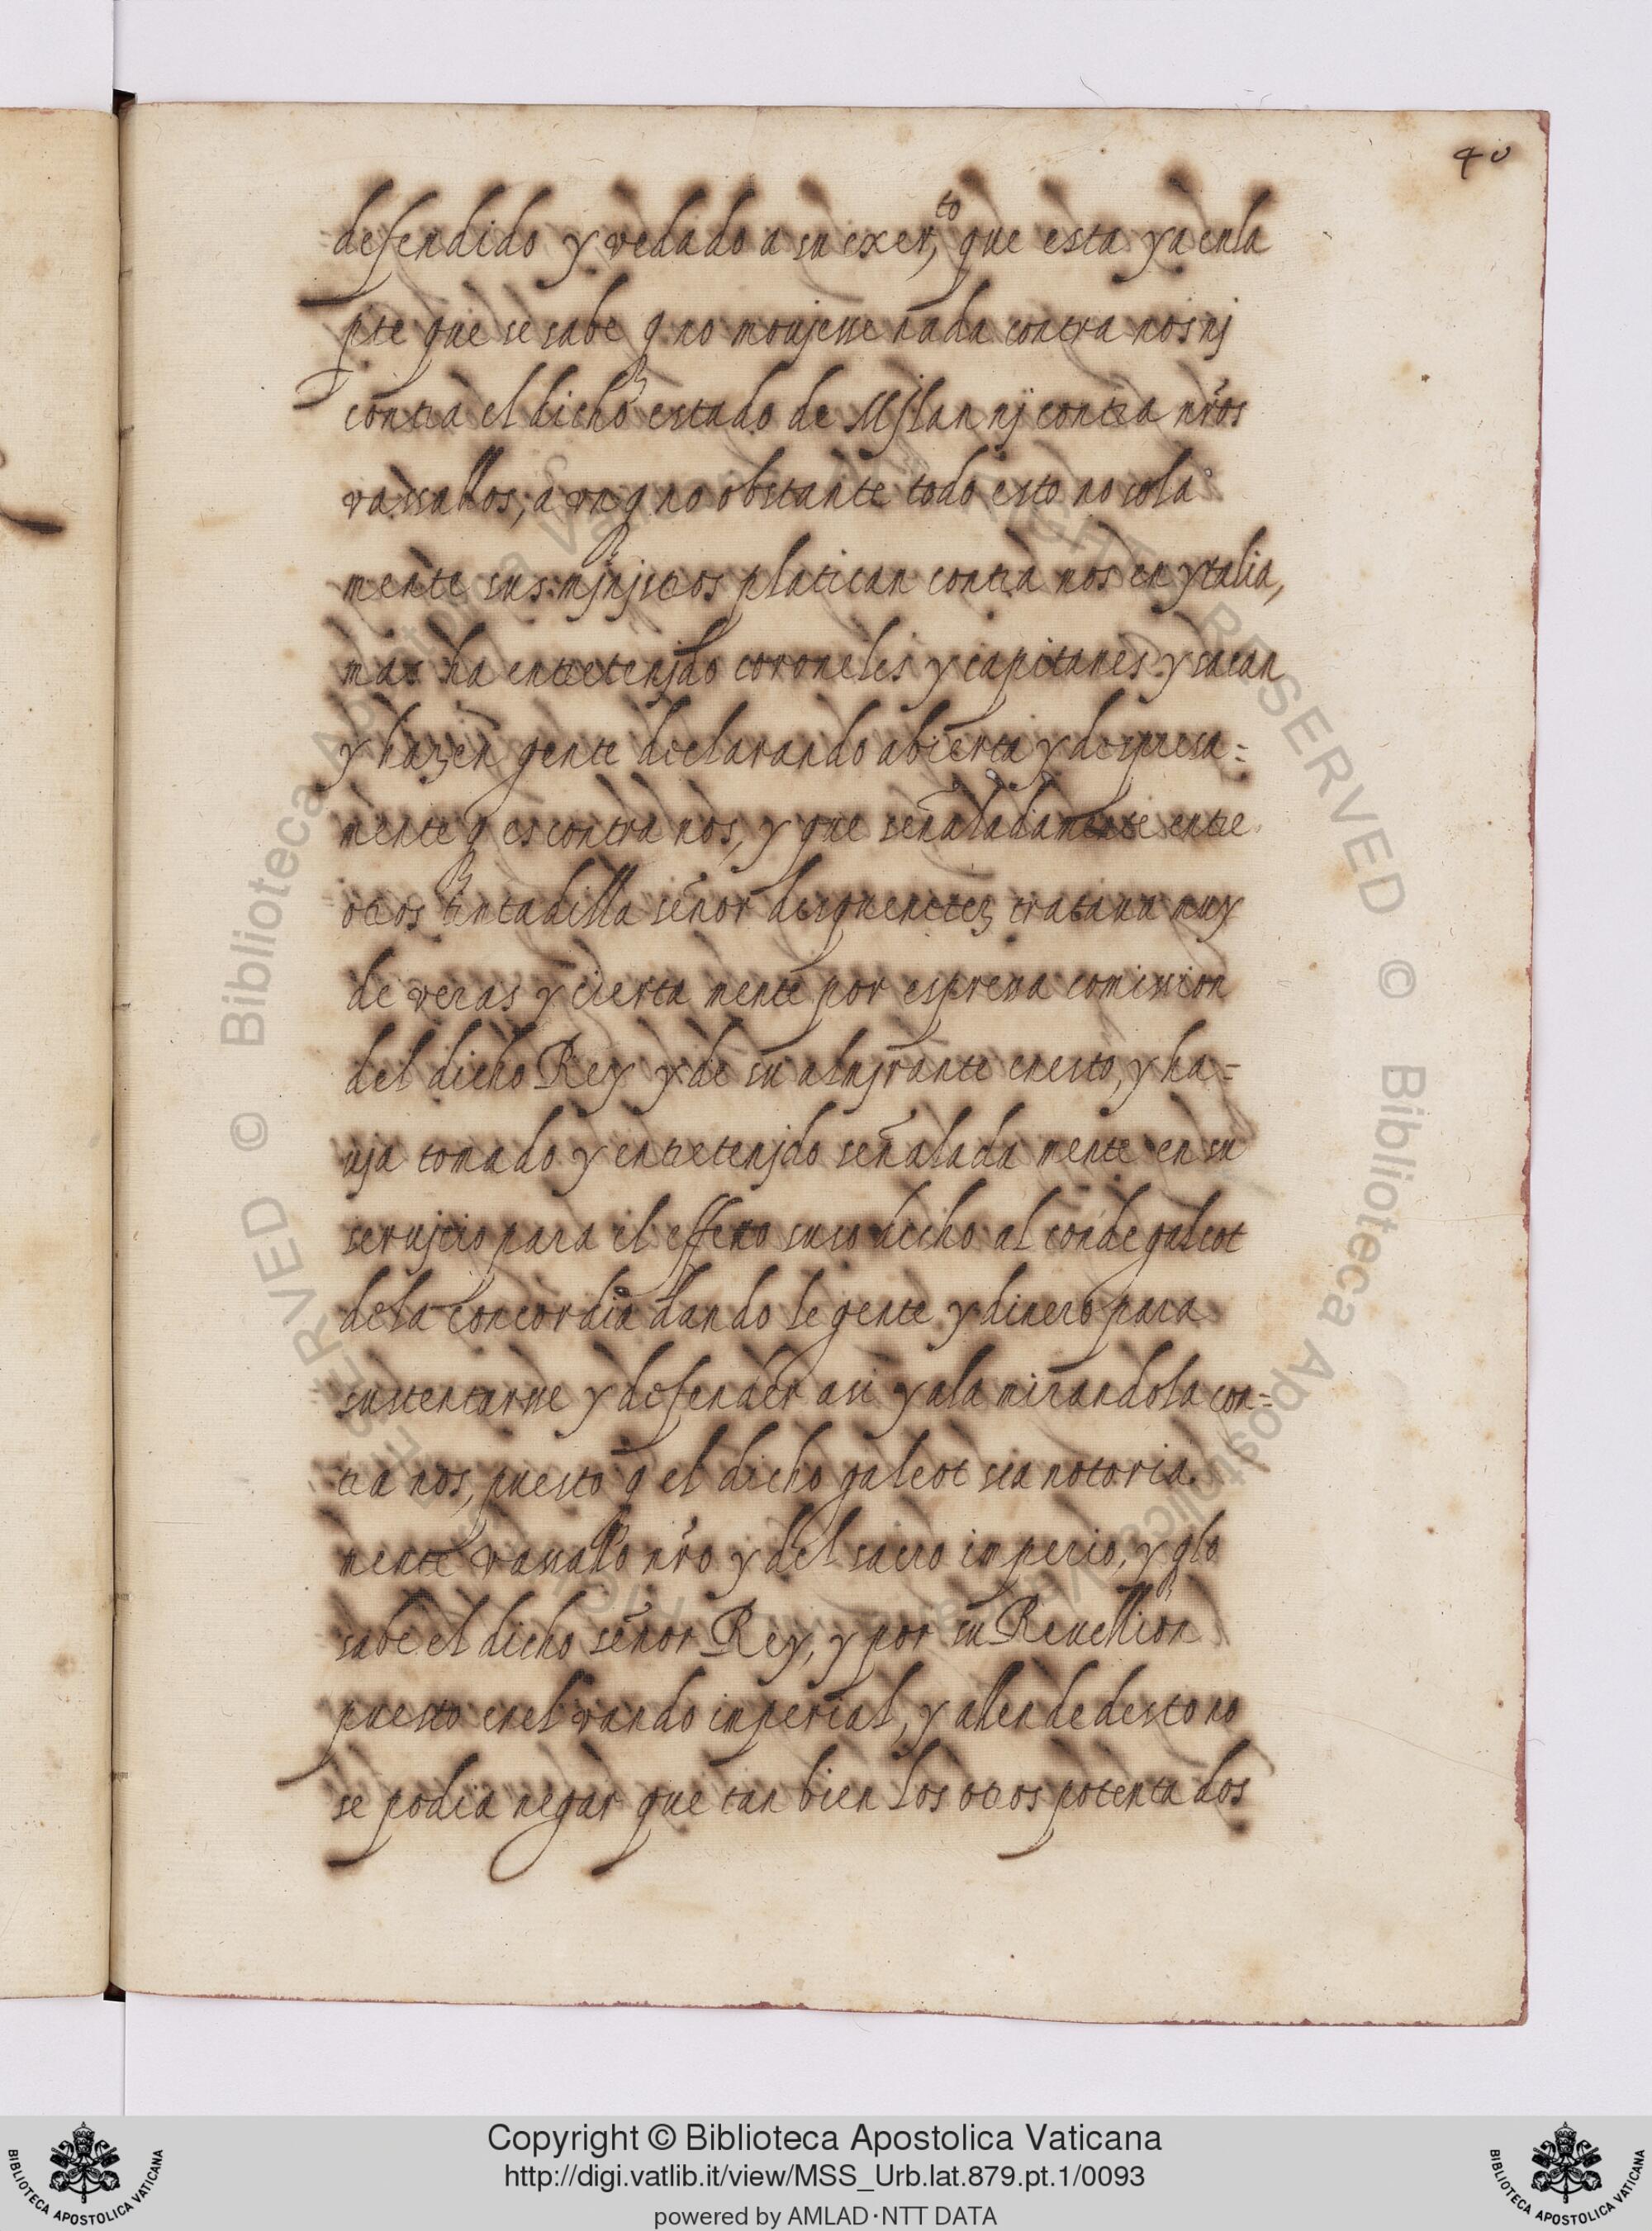 40
defendido y vedado a su exerto, que esta ya enla
pte que se sabe q no moujesse nada contra nos nj
contra el dicho estado de Mjlan nj contra nr̃os
vassallos, a vnq no obstante todo esto no sola
mente sus mjnjstros platican contra nos en ytalia,
mas ha entretenjdo coroneles y capitanes y sacan
y hazen gente declarando abierta y despresa=
mente q es contra nos, y que señaladamente entre
otros señor tratana muy
de veras y cierta mente por espressa comission
del dicho Rey y de su almjrante enesto, y ha=
uja tomado y entretenjdo señalada mente en su
serujcio para el effetto suso dicho al conde galeot
dela concordia dando le gente y dinero para
sustentarsse y defender asi y ala mirandola con=
tra nos, puesto q el dicho galeot sea notoria
mente vassallo nr̃o y del sacro imperio, y qlo
sabe el dicho señor Rey, y por su Reuellion
puesto enel vando imperial, y allende desto no
se podia negar que tan bien los otros potenta dos
Copyright © Biblioteca Apostolica Vaticana
http://digi.vatlib.it/view/MSS_Urb.lat.879.pt.1/0093
powered by AMLAD·NTT DATA
BIBLIOTECA APOSTOLICA VATICANA
BIBLIOTECA APOSTOLICA VATICANA